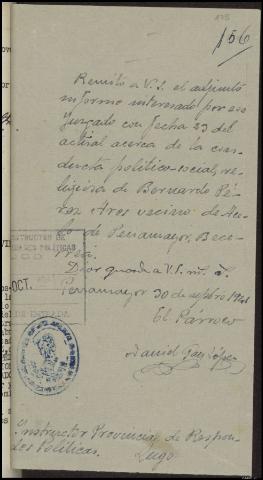 156
Remito a V.S. el adjunto
informe interesado por ese
Juzgado con fecha 23 del
actual acerca de la con-
ducta político-social, re-
ligiosa de Bernardo Pé-
rez Ares vecino de
de Penamayor, Bece-
rreá.
Dios guarde a V.S. m. a.
Penamayor 30 de sepbre 1941
El Párroco
Daniel López
Instructor Provincial de Respon-
des Políticas. Lugo
INSTRUCTOR DE
POLÍTICAS
OCT.
DE ENTRADA